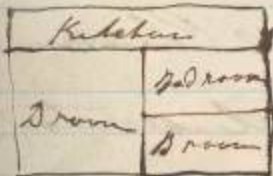 Kitchen
Bed room
D room
B room